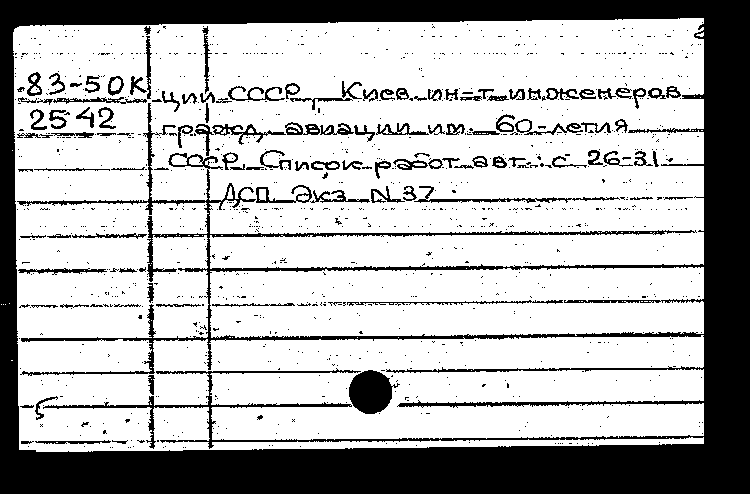 2
83-50К
2542
ции СССР, Киев. ин-т инженеров
гражд. авиации им. 60-летия
СССР. Список работ авт.: с 26-31.
ДСП. Экз. N 37.
5